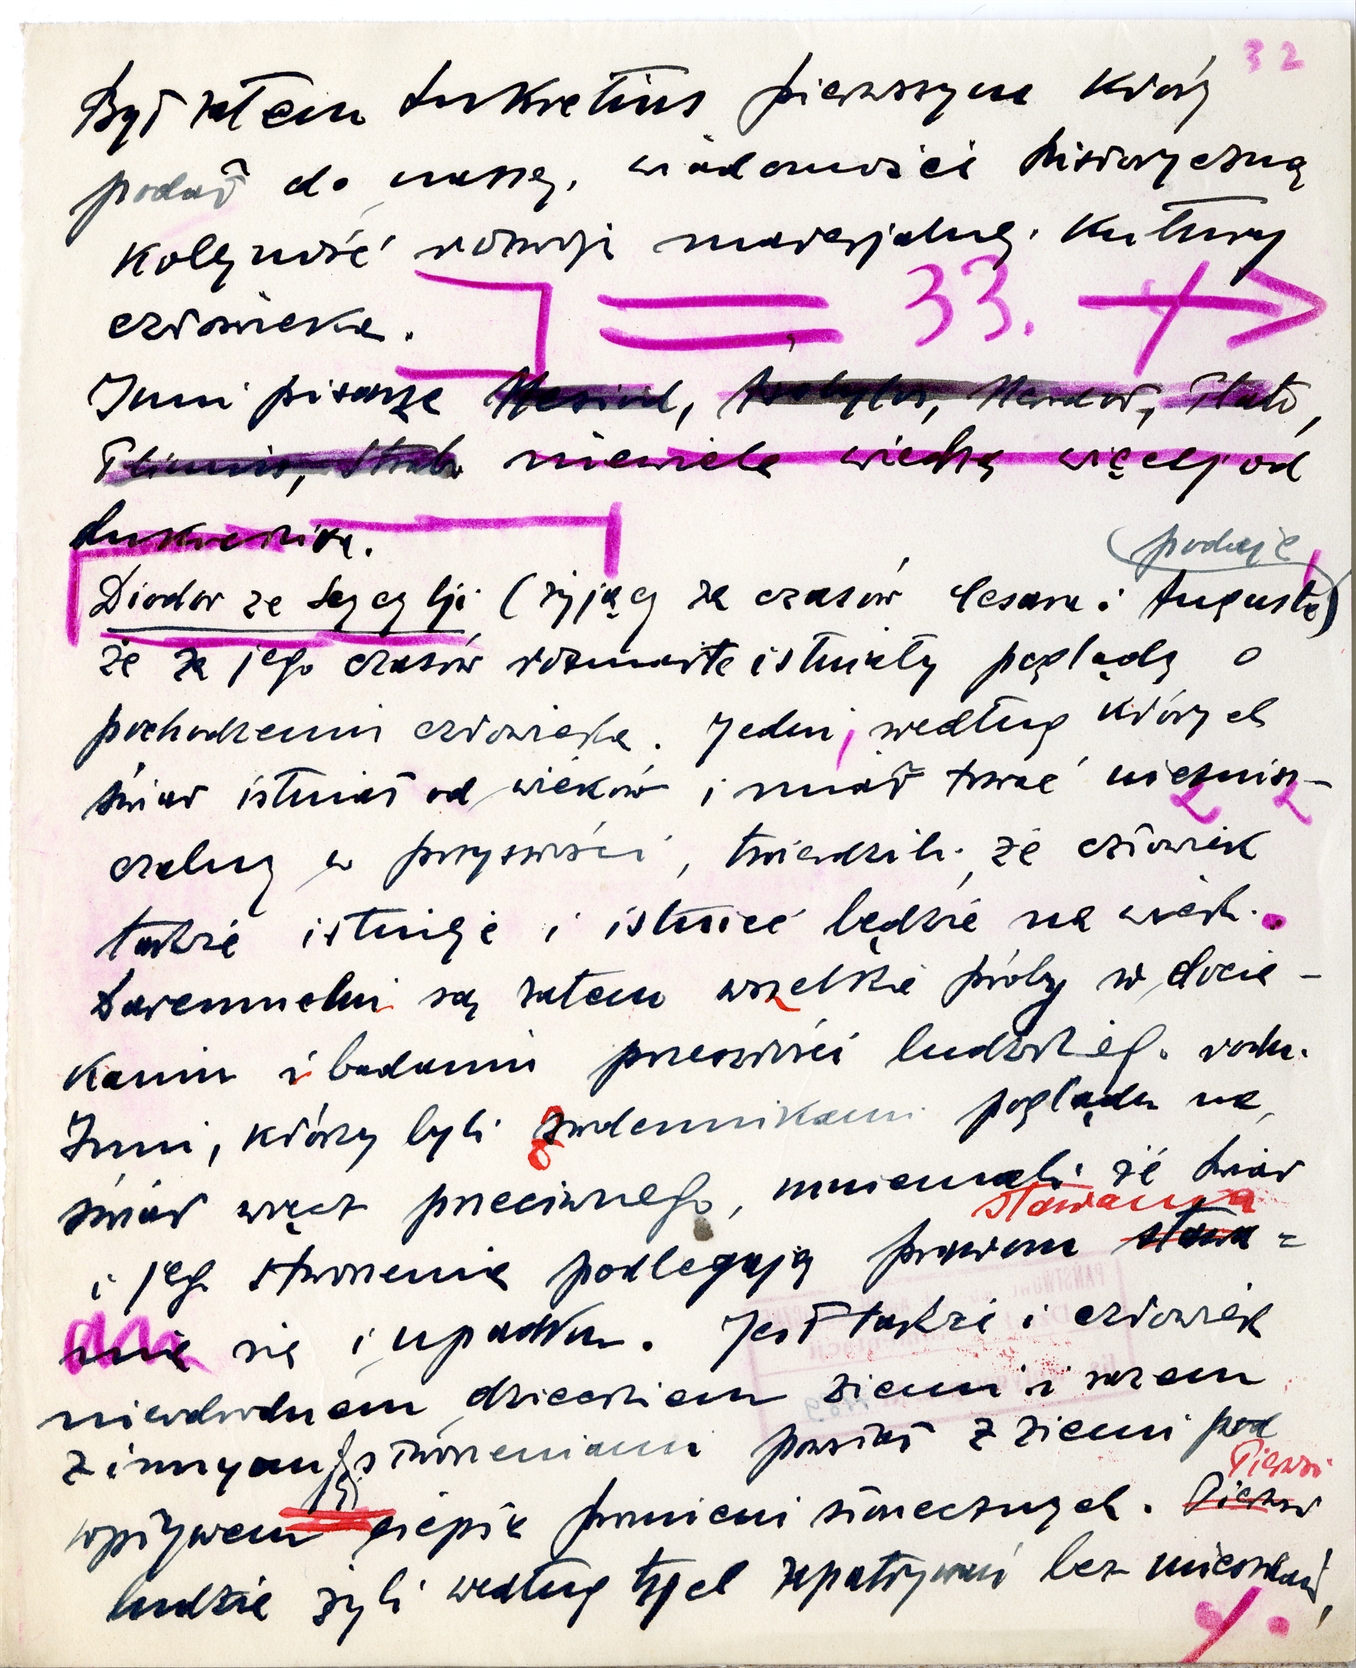 32
Był zatem Lukretius pierwszym który
podał do naszej wiadomości historyczną
kolejność rozwoju materjalnej kultury
człowieka.
33.
Inni pisarze Hesiod, Aeschylos, Herodot, Plato,
Plinius, Strabo niewiele wiedzą więcej od
Lukrecius.
podaje
Diodor ze Sycylji (żyjący za czasów Cesara i Augusta)
że za jego czasów rozmaite istniały poglądy o
pochodzeniu człowieka. Jedni, według których
świat istniał od wieków i miał trwać niezniszczalny
w przyszłości, twierdzili że człowiek
także istnieje i istnieć będzie na wieki.
Daremnemi są zatem wszelkie próby w docie-
kaniu i badaniu przeszłości ludzkiego rodu.
Inni, którzy byli zwolennikami poglądu na
świat wręcz przeciwnego, mniemali że świat
stawania
i jego stworzenia podlegają prawom stawa=
nia się i upadku. Jest także i człowiek
nieodrodnem dzieckiem ziemi i razem
z innymi stworzeniami powstał z ziemi pod
Pierwsi
wpływem ciepła promieni słonecznych. Pierwsi
ludzie żyli według tych zapatrywań bez mieszkań,